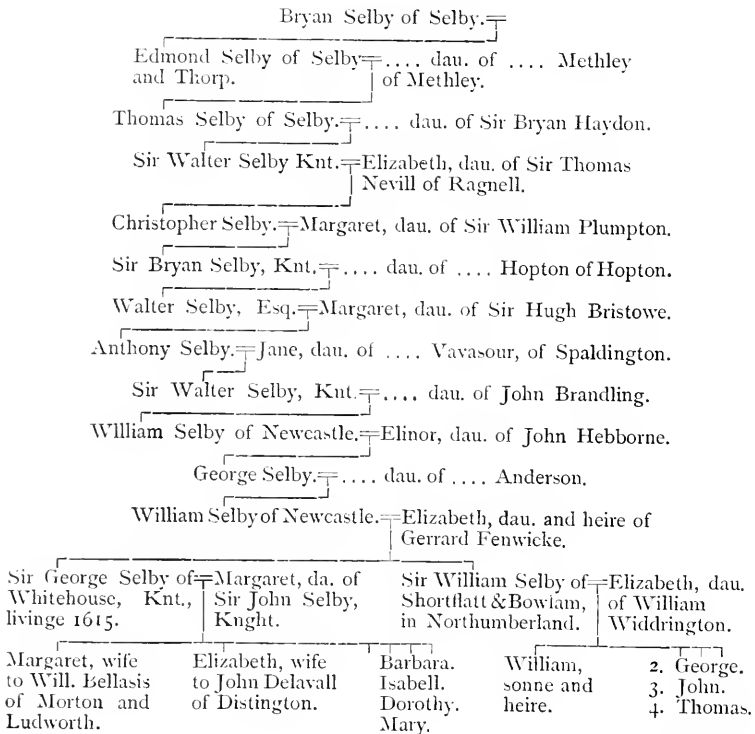 Bryan Selby of Selby.
Edmond Selby of Selby .... dau. of .... Methley
and Thorp. of Methley.
Thomas Selby of Selby. .... dau. of Sir Bryan Haydon.
Sir Walter Selby Knt. Elizabeth, dau. of Sir Thomas
Nevill of Ragnell.
Christopher Selby. Margaret, dau. of Sir William Plumpton.
Sir Bryan Selby, Knt. .... dau. of .... Hopton of Hopton.
Walter Selby, Esq. Margaret, dau. of Sir Hugh Bristowe.
Anthony Selby. Jane, dau. of .... Vavasour, of Spaldington.
Sir Walter Selby, Knt. .... dau. of John Brandling.
WIlliam Selby of Newcastle. Elinor, dau. of John Hebborne.
George Selby. .... dau. of .... Anderson.
William Selby of Newcastle. Elizabeth, dau. and heire of
Gerrard Fenwicke.
Sir George Selby of
Whitehouse, Knt.,
livinge 1615.
Margaret, da. of
Sir John Selby,
Knght.
Sir William Selby of
Shortflatt & Bowlam,
in Northumberland.
Elizabeth, dau.
of William
Widdrington.
Margaret, wife
to Will. Bellasis
of Morton and
Ludworth.
Elizabeth, wife
to John Delavall
of Distington.
Barbara.
Isabell.
Dorothy.
Mary.
William,
sonne and
heire.
2. George.
3. John.
4. Thomas.